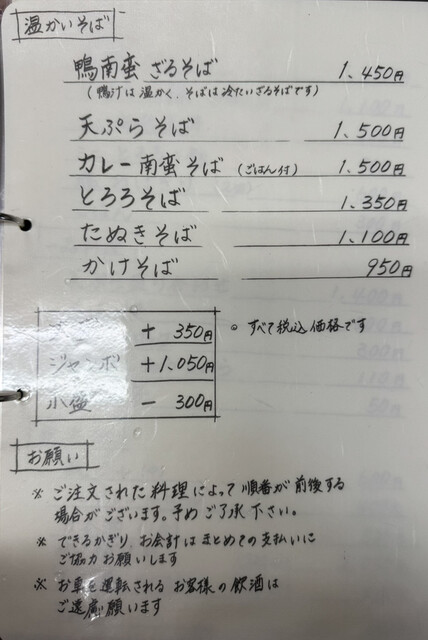 温かいそば
鴨南蛮 ざるそば 1、450円
(鴨汁は温かく、そばは冷たいざるそばです)
天ぷらそば 1、500円
カレー南蛮そば (ごはん付) 1、500円
とろろそば 1、350円
たぬきそば 1、100円
かけそば 950円
+ 350円 ◦ すべて税込価格です
ジャンボ +1、050円
小盛 - 300円
お願い
※ ご注文された料理によって順番が前後する
場合がございます。予めご了承下さい。
※ できるかぎり、お会計はまとめての支払いに
ご協力お願いします
※ お車を運転されるお客様の飲酒は
ご遠慮願います